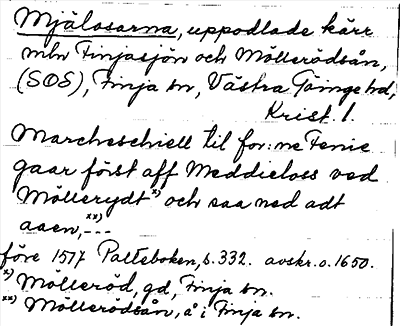 Mjälosarna, uppodlade kärr
mbn Finjasjön och Möllerödsån,
(SOS), Finja sn, Västra Göinge hd,
Krist. l.
Marcheschiell til for:ne Fenie
gaar först aff Meddieloss ved
Möllerydt x) och saa ned adt
aaen, xx) ---
före 1517 Palteboken, s. 332. avskr. o. 1650.
x) Mölleröd, gd, Finja sn.
xx) Möllerödsån, å i Finja sn.